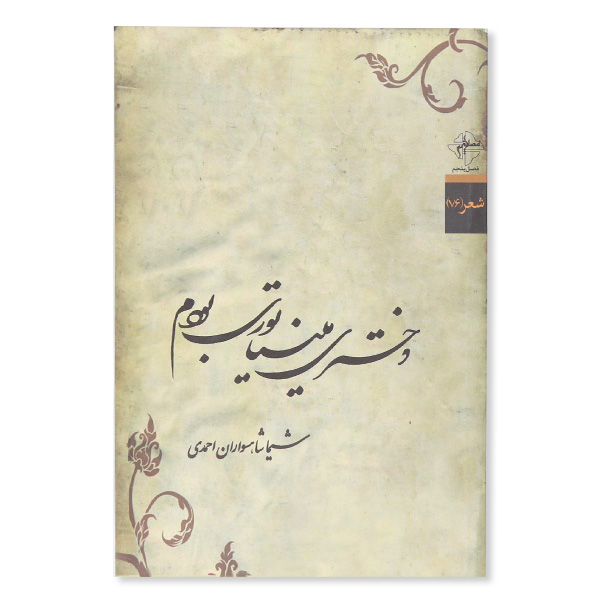 فصل پنجم
شعر (۷۶)
دختری مینیاتوری بودم
شیما شاهسواران احمدی